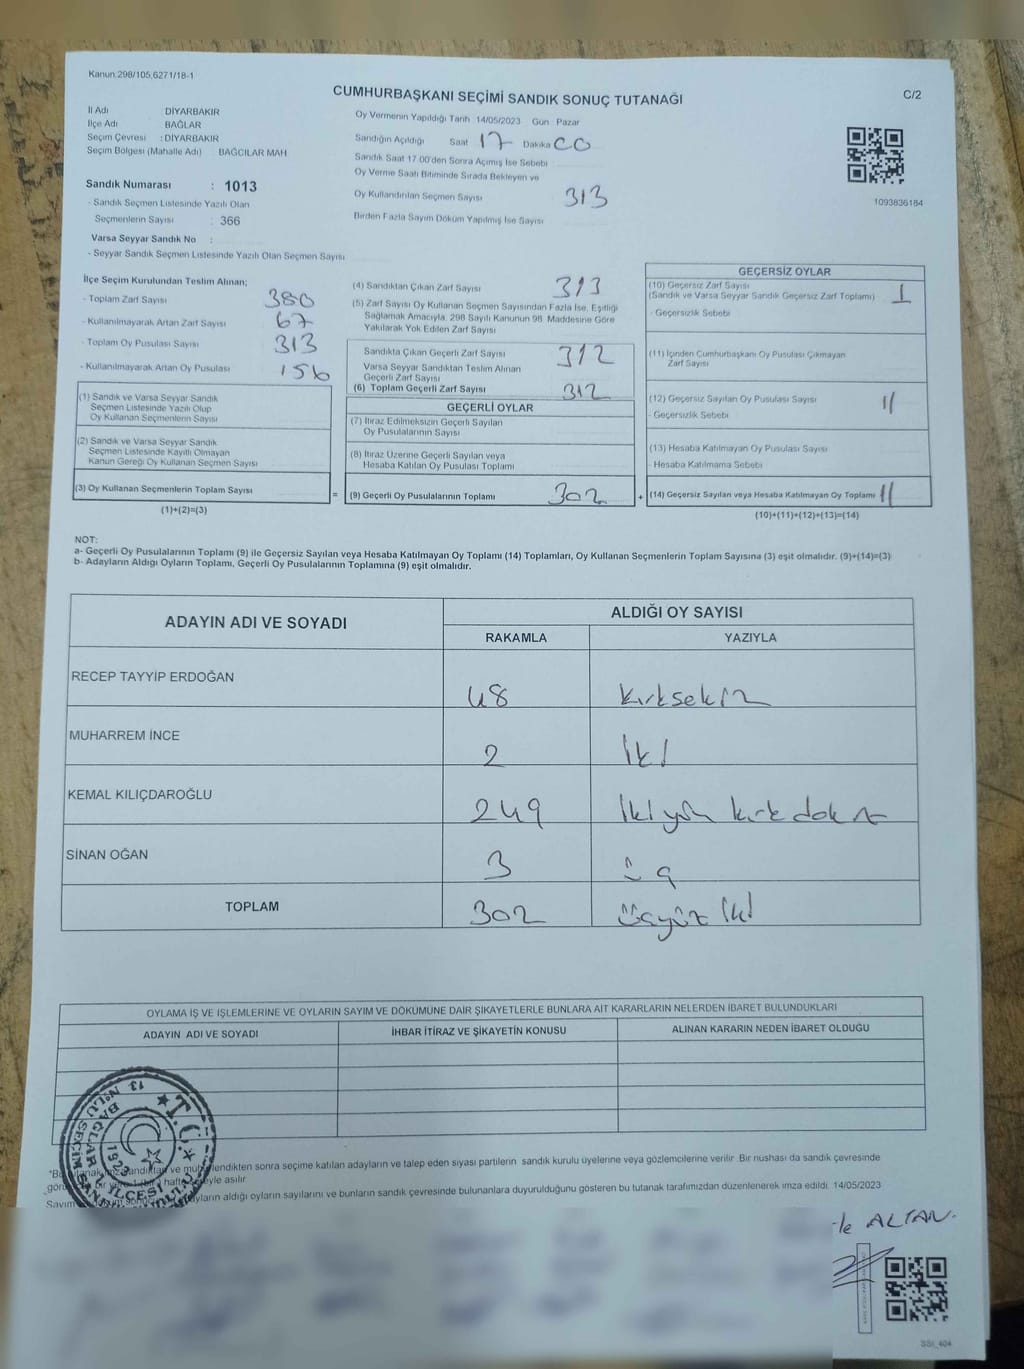 Kanun:298/105,6271/18-1
CUMHURBAŞKANI SEÇİMİ SANDIK SONUÇ TUTANAĞI
C/2
İl Adı DİYARBAKIR
İlçe Adı BAĞLAR
Seçim Çevresi : DİYARBAKIR
Seçim Bölgesi (Mahalle Adı) BAĞCILAR MAH
Sandık Numarası : 1013
- Sandık Seçmen Listesinde Yazılı Olan
Seçmenlerin Sayısı : 366
Varsa Seyyar Sandık No :
- Seyyar Sandık Seçmen Listesinde Yazılı Olan Seçmen Sayısı
Oy Vermenin Yapıldığı Tarih 14/05/2023 Gün Pazar
Sandığın Açıldığı Saat 17 Dakika 00
Sandık Saat 17.00'den Sonra Açılmış İse Sebebi
Oy Verme Saati Bitiminde Sırada Bekleyen ve
Oy Kullandırılan Seçmen Sayısı 313
Birden Fazla Sayım Döküm Yapılmış İse Sayısı
1093836184
İlçe Seçim Kurulundan Teslim Alınan;
- Toplam Zarf Sayısı 380
- Kullanılmayarak Artan Zarf Sayısı 67
- Toplam Oy Pusulası Sayısı 313
- Kullanılmayarak Artan Oy Pusulası 156
(1) Sandık ve Varsa Seyyar Sandık
Seçmen Listesinde Yazılı Olup
Oy Kullanan Seçmenlerin Sayısı
(2) Sandık ve Varsa Seyyar Sandık
Seçmen Listesinde Kayıtlı Olmayan
Kanun Gereği Oy Kullanan Seçmen Sayısı
(3) Oy Kullanan Seçmenlerin Toplam Sayısı
(1)+(2)=(3)
(4) Sandıktan Çıkan Zarf Sayısı 313
(5) Zarf Sayısı Oy Kullanan Seçmen Sayısından Fazla İse, Eşitliği
Sağlamak Amacıyla, 298 Sayılı Kanunun 98. Maddesine Göre
Yakılarak Yok Edilen Zarf Sayısı
Sandıkta Çıkan Geçerli Zarf Sayısı 312
Varsa Seyyar Sandıktan Teslim Alınan
Geçerli Zarf Sayısı
(6) Toplam Geçerli Zarf Sayısı 312
GEÇERLİ OYLAR
(7) İtiraz Edilmeksizin Geçerli Sayılan
Oy Pusulalarının Sayısı
(8) İtiraz Üzerine Geçerli Sayılan veya
Hesaba Katılan Oy Pusulası Toplamı
= (9) Geçerli Oy Pusulalarının Toplamı 302 +
GEÇERSİZ OYLAR
(10) Geçersiz Zarf Sayısı
(Sandık ve Varsa Seyyar Sandık Geçersiz Zarf Toplamı) 1
- Geçersizlik Sebebi
(11) İçinden Cumhurbaşkanı Oy Pusulası Çıkmayan
Zarf Sayısı
(12) Geçersiz Sayılan Oy Pusulası Sayısı 11
- Geçersizlik Sebebi
(13) Hesaba Katılmayan Oy Pusulası Sayısı
- Hesaba Katılmama Sebebi
(14) Geçersiz Sayılan veya Hesaba Katılmayan Oy Toplamı 11
(10)+(11)+(12)+(13)=(14)
NOT:
a- Geçerli Oy Pusulalarının Toplamı (9) ile Geçersiz Sayılan veya Hesaba Katılmayan Oy Toplamı (14) Toplamları, Oy Kullanan Seçmenlerin Toplam Sayısına (3) eşit olmalıdır. (9)+(14)=(3)
b- Adayların Aldığı Oyların Toplamı, Geçerli Oy Pusulalarının Toplamına (9) eşit olmalıdır.
ADAYIN ADI VE SOYADI
ALDIĞI OY SAYISI
RAKAMLA YAZIYLA
RECEP TAYYİP ERDOĞAN 48 kırksekiz
MUHARREM İNCE 2 iki
KEMAL KILIÇDAROĞLU 249 ikiyüz kırk dokuz
SİNAN OĞAN 3 üç
TOPLAM 302 üçyüz iki
OYLAMA İŞ VE İŞLEMLERİNE VE OYLARIN SAYIM VE DÖKÜMÜNE DAİR ŞİKAYETLERLE BUNLARA AİT KARARLARIN NELERDEN İBARET BULUNDUKLARI
ADAYIN ADI VE SOYADI İHBAR İTİRAZ VE ŞİKAYETİN KONUSU ALINAN KARARIN NEDEN İBARET OLDUĞU
T.C.
BAĞLAR
İLÇESİ
1923
13 NOLU SEÇİM SANDIK
sonra seçime katılan adayların ve talep eden siyasi partilerin sandık kurulu üyelerine veya gözlemcilerine verilir. Bir nüshası da sandık çevresinde
asılır.
aldığı oyların sayılarını ve bunların sandık çevresinde bulunanlara duyurulduğunu gösteren bu tutanak tarafımızdan düzenlenerek imza edildi. 14/05/2023
ALTAN